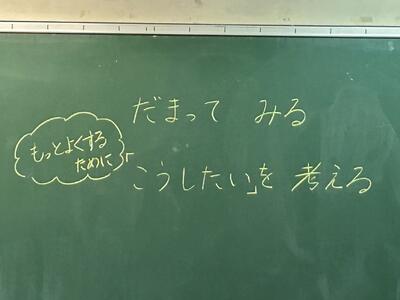 だまって みる
もっとよくする
ために
「こうしたい」を 考える